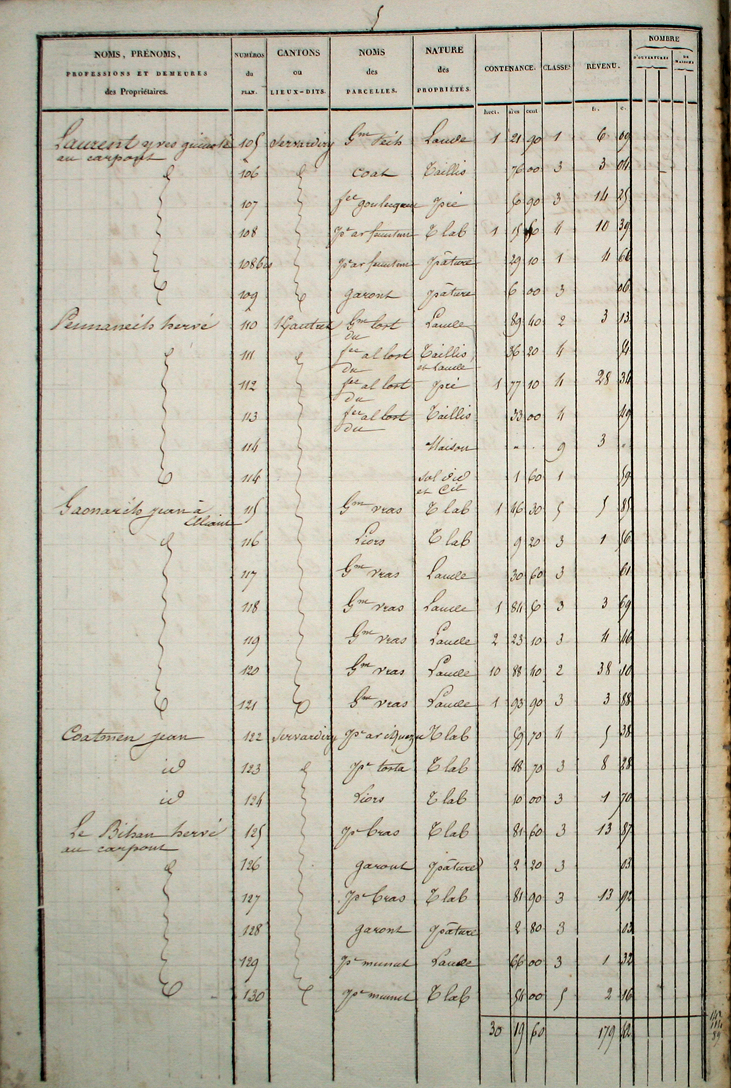 5
NOMS, PRÉNOMS, PROFESSIONS ET DEMEURES des Propriétaires. NUMÉROS du PLAN. CANTONS ou LIEUX-DITS. NOMS des PARCELLES. NATURE des PROPRIÉTÉS. CONTENANCE. CLASSE. REVENU. NOMBRE D'OUVERTURES DE MAISONS
hect. ares cent. fr. c.
Laurent yves 105 Servardiry Gm Laude 1 21 90 1 6 09
au carpont
106 Coat Taillis 76 00 3 3 04
107 pré 6 90 3 14 25
108 T lab 1 15 4 10 39
108 bis pâture 29 10 1 4 66
109 garont pâture 6 00 3 06
Pennanéch hervé 110 Gm lort Laude 89 40 2 3 13
du
111 al lort Taillis 36 20 4
du et Laude
112 al lort pré 1 77 10 4 28 34
du
113 al lort Taillis 33 00 4 49
du
114 Maison - - 9 3 -
114 sol 1 60 1 59
et
Gaonarch jean à 115 Gm vras T lab 1 46 30 5 5 85
116 Liors T lab 9 20 3 1 56
117 Gm vras Laude 30 60 3 61
118 Gm vras Laude 1 84 3 3 69
119 Gm vras Laude 2 23 10 3 4 46
120 Gm vras Laude 10 88 40 2 38 10
121 Gm vras Laude 1 93 90 3 3 88
Coatmen jean 122 Servardiry T lab 59 70 4 5 38
id 123 pc torta T lab 48 70 3 8 28
id 124 Liors T lab 10 00 3 1 70
Le Bihan hervé 125 pc bras T lab 81 60 3 13 87
au carpont
126 garont pâture 2 20 3 03
127 pc bras T lab 81 90 3 13 92
128 garont pâture 2 80 3 03
129 pc munut Laude 66 00 3 1 32
130 pc munut T lab 54 00 5 2 16
30 19 60 179 62